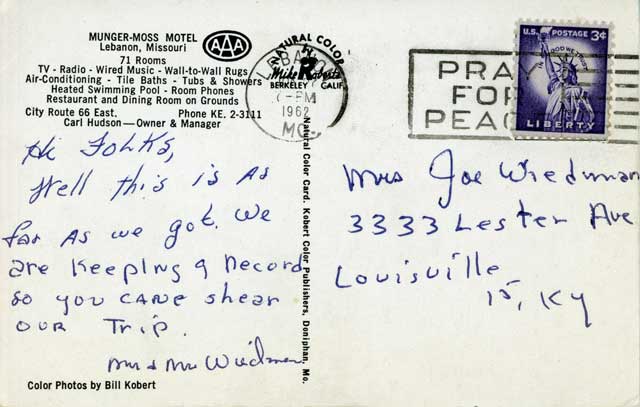 MUNGER-MOSS MOTEL
Lebanon, Missouri
AAA
71 Rooms
TV - Radio - Wired Music - Wall-to-Wall Rugs
Air-Conditioning - Tile Baths - Tubs & Showers
Heated Swimming Pool - Room Phones
Restaurant and Dining Room on Grounds
City Route 66 East, Phone KE. 2-3111
Carl Hudson—Owner & Manager
NATURAL COLOR
Mike Roberts
BERKELEY CALIF
PM
1962
MO.
PRA
FOR
PEAC
U.S. POSTAGE 3¢
IN GOD WE TRUST
LIBERTY
Hi Folks,
Well this is As
far As we got. We
are Keeping a Record
so you cane shear
our Trip.
Mr & Mrs Wiedman
Natural Color Card, Kobert Color Publishers, Doniphan, Mo.
Mrs Joe Wiedman
3333 Lester Ave
Louisville
15, Ky
Color Photos by Bill Kobert